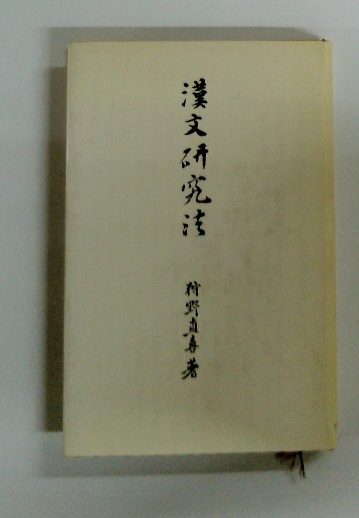 漢文研究法
狩野直喜著